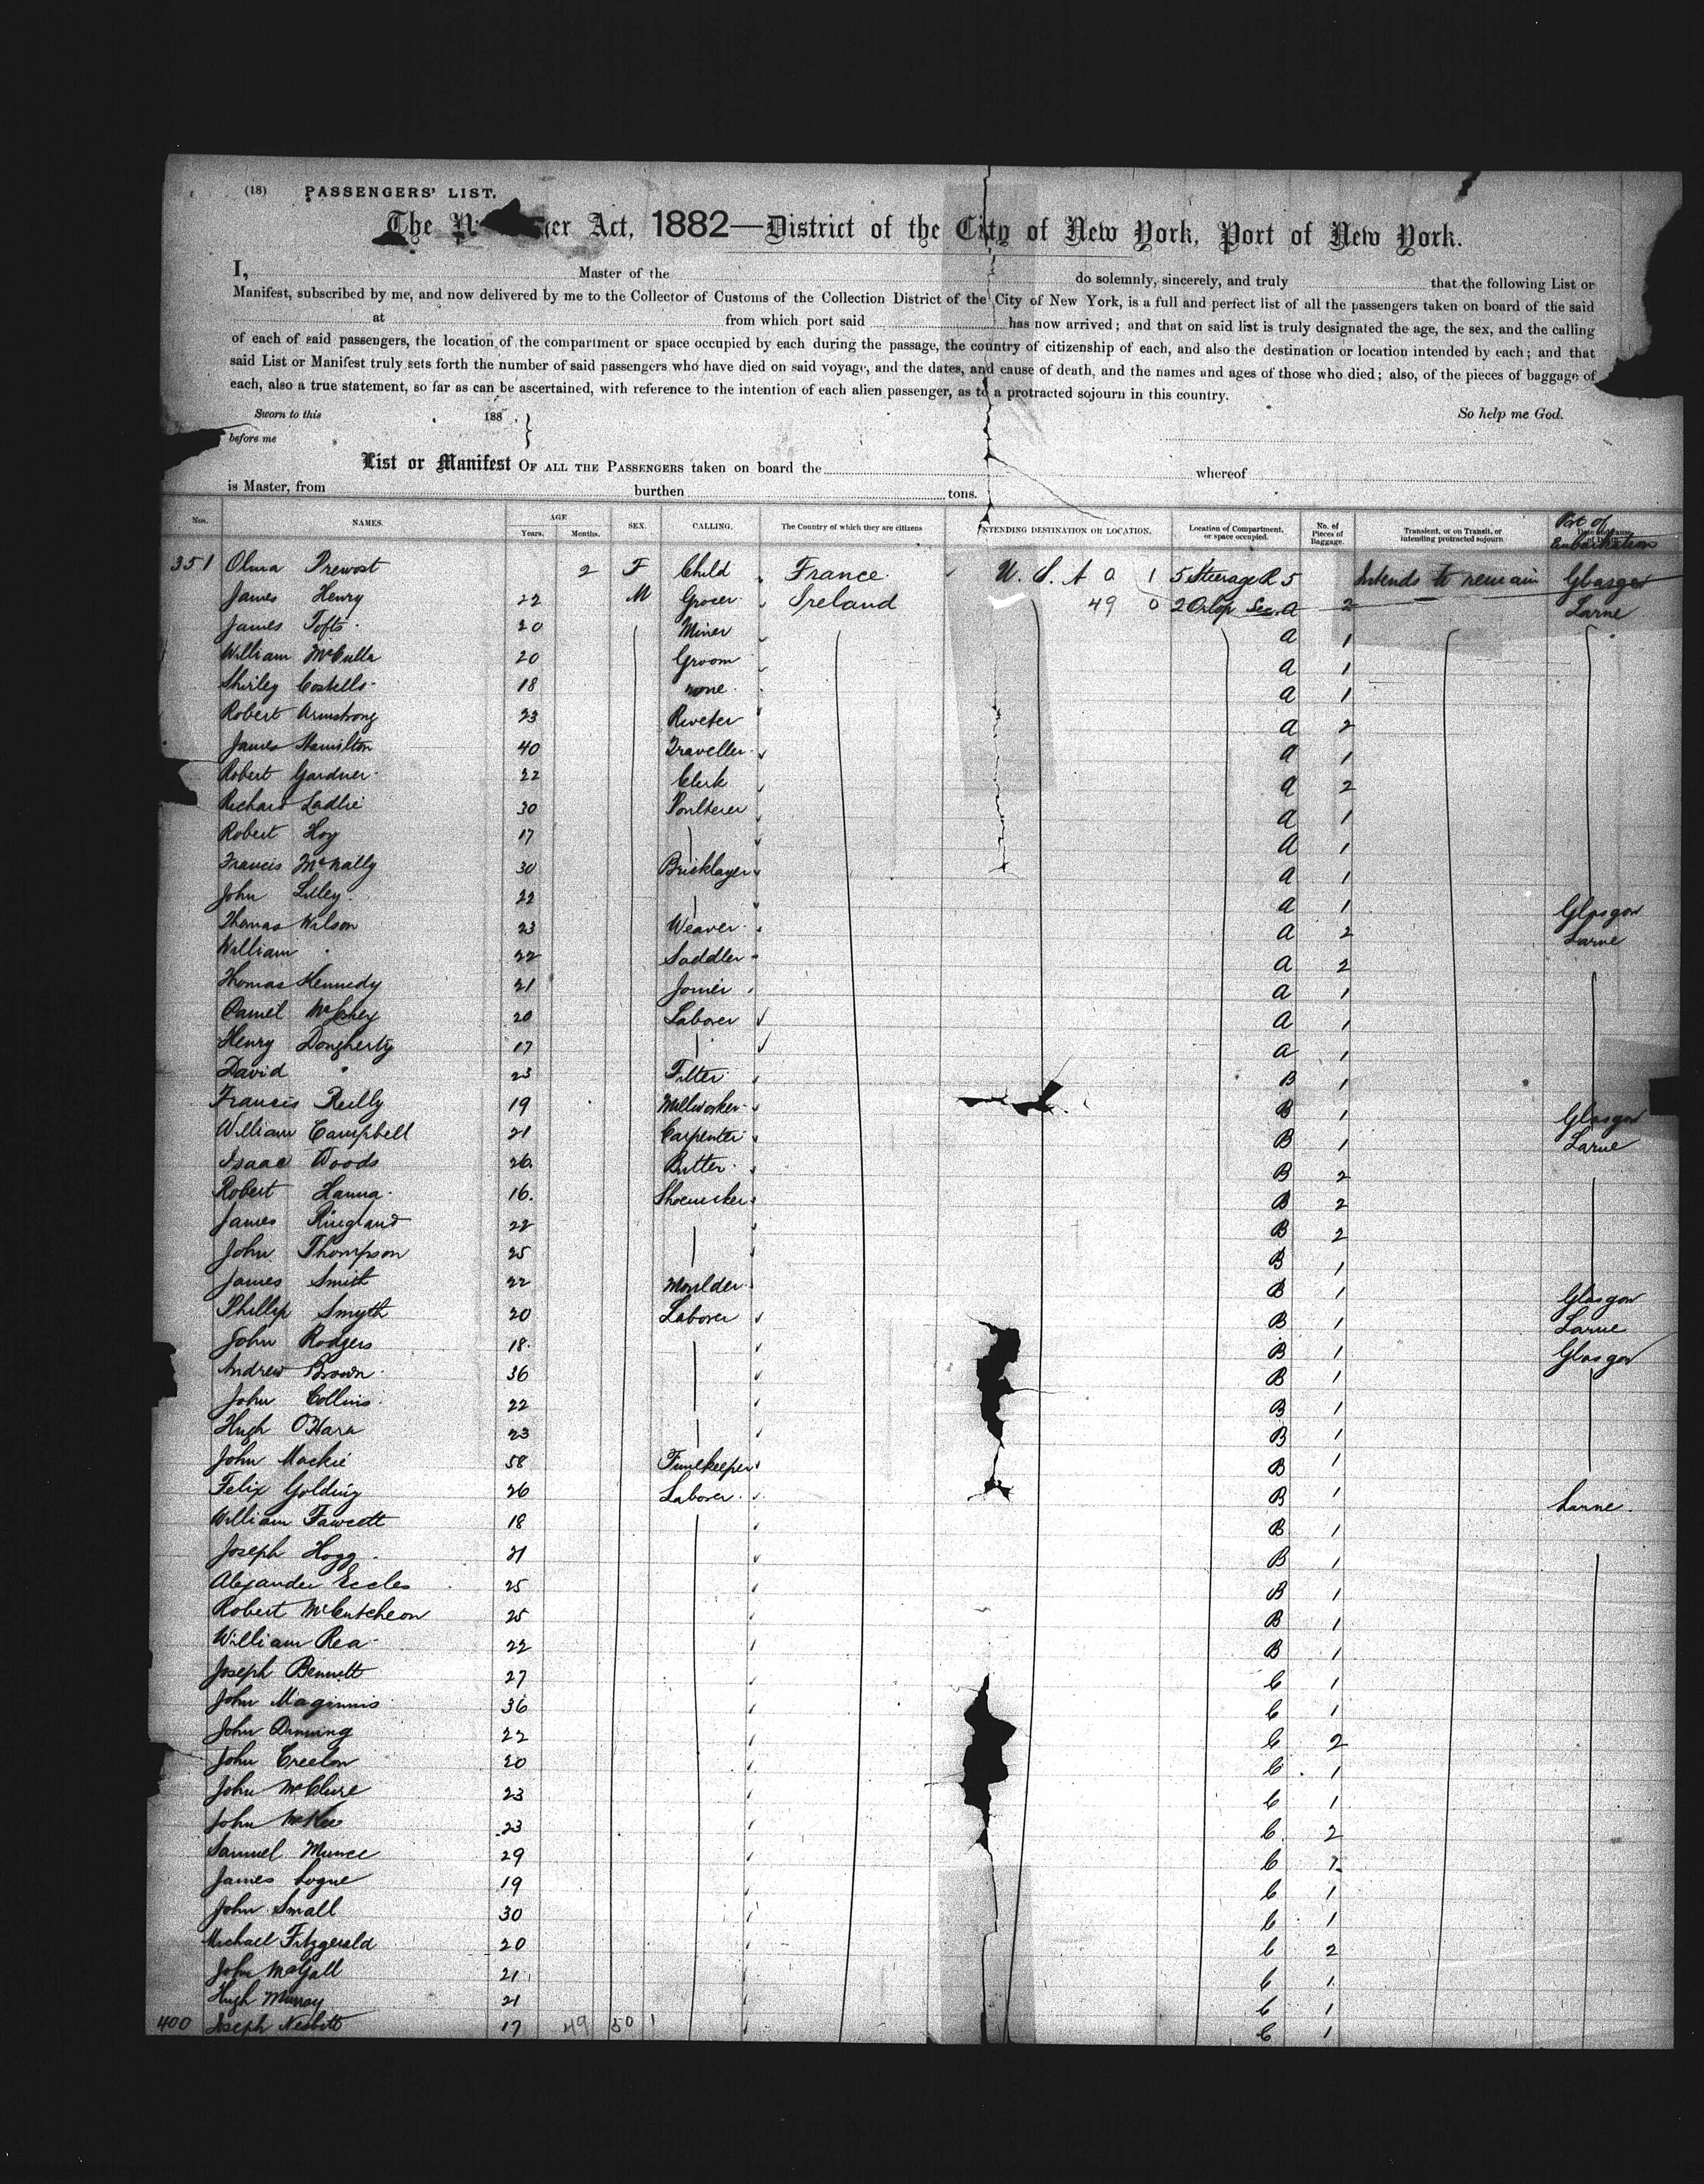 (18) PASSENGERS' LIST.
The er Act, 1882—District of the City of New York, Port of New York.
I, Master of the do solemnly, sincerely, and truly that the following List or
Manifest, subscribed by me, and now delivered by me to the Collector of Customs of the Collection District of the City of New York, is a full and perfect list of all the passengers taken on board of the said
at from which port said has now arrived; and that on said list is truly designated the age, the sex, and the calling
of each of said passengers, the location of the compartment or space occupied by each during the passage, the country of citizenship of each, and also the destination or location intended by each; and that
said List or Manifest truly sets forth the number of said passengers who have died on said voyage, and the dates, and cause of death, and the names and ages of those who died; also, of the pieces of baggage of
each, also a true statement, so far as can be ascertained, with reference to the intention of each alien passenger, as to a protracted sojourn in this country.
Sworn to this 188 . So help me God.
before me
List or Manifest OF ALL THE PASSENGERS taken on board the whereof
is Master, from burthen tons.
Nos. NAMES. AGE Years. Months. SEX. CALLING. The Country of which they are citizens INTENDING DESTINATION OR LOCATION. Location of Compartment, or space occupied. No. of Pieces of Baggage. Transient, or on Transit, or intending protracted sojourn Port of Embarkation
351 Olma Prewost 2 F Child France U. S. A 0 1 5 Steerage R 5 Intends to remain Glasgow
James Henry 22 M Grocer Ireland 49 0 2 Orlop Sec. A 2 Larne
James Tofts 20 Miner A 1
William McCulla 20 Groom A 1
Shirley Costello 18 none A 1
Robert Armstrong 23 Riveter A 2
James Hamilton 40 Traveller A 1
Robert Gardner 22 Clerk A 2
Richard Ladlie 30 Poulterer A 1
Robert Hoy 17 A 1
Francis McNally 30 Bricklayer A 1
John Lilley 22 A 1 Glasgow
Thomas Wilson 23 Weaver A 2 Larne
William " 22 Saddler A 2
Thomas Kennedy 21 Joiner A 1
Daniel 20 Laborer A 1
Henry Dougherty 17 A 1
David " 23 Fitter B 1
Francis Reilly 19 Millworker B 1 Glasgow
William Campbell 21 Carpenter B 1 Larne
Isaac Woods 26 B 2
Robert Hanna 16 Shoemaker B 2
James Ringland 22 B 2
John Thompson 25 B 1
James Smith 22 Moulder B 1 Glasgow
Phillip Smyth 20 Laborer B 1 Larne
John Rodgers 18 B 1 Glasgow
Andrew Brown 36 B 1
John Collins 22 B 1
Hugh O'Hara 23 B 1
John Mackie 58 Timekeeper B 1
Felix Golding 26 Laborer B 1 Larne
William Fawcett 18 B 1
Joseph Hogg 21 B 1
Alexander Eccles 25 B 1
Robert McCutcheon 25 B 1
William Rea 22 B 1
Joseph Bennett 27 C 1
John Maginnis 36 C 1
John 22 C 2
John Creelon 20 C 1
John McClure 23 C 1
John McKee 23 C 2
Samuel Munce 29 C
James Logue 19 C 1
John Small 30 C 1
Michael Fitzgerald 20 C 2
John McGall 21 C 1
Hugh Murray 21 C 1
400 Joseph Nesbitt 17 49 50 1 C 1